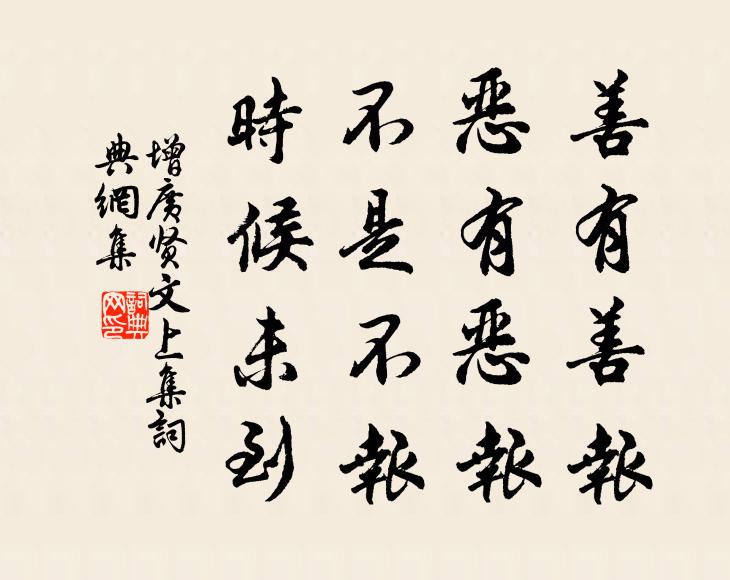 善有善報
惡有惡報
不是不報
時候未到
增廣贤文上集詞
典網集
詞典
网印